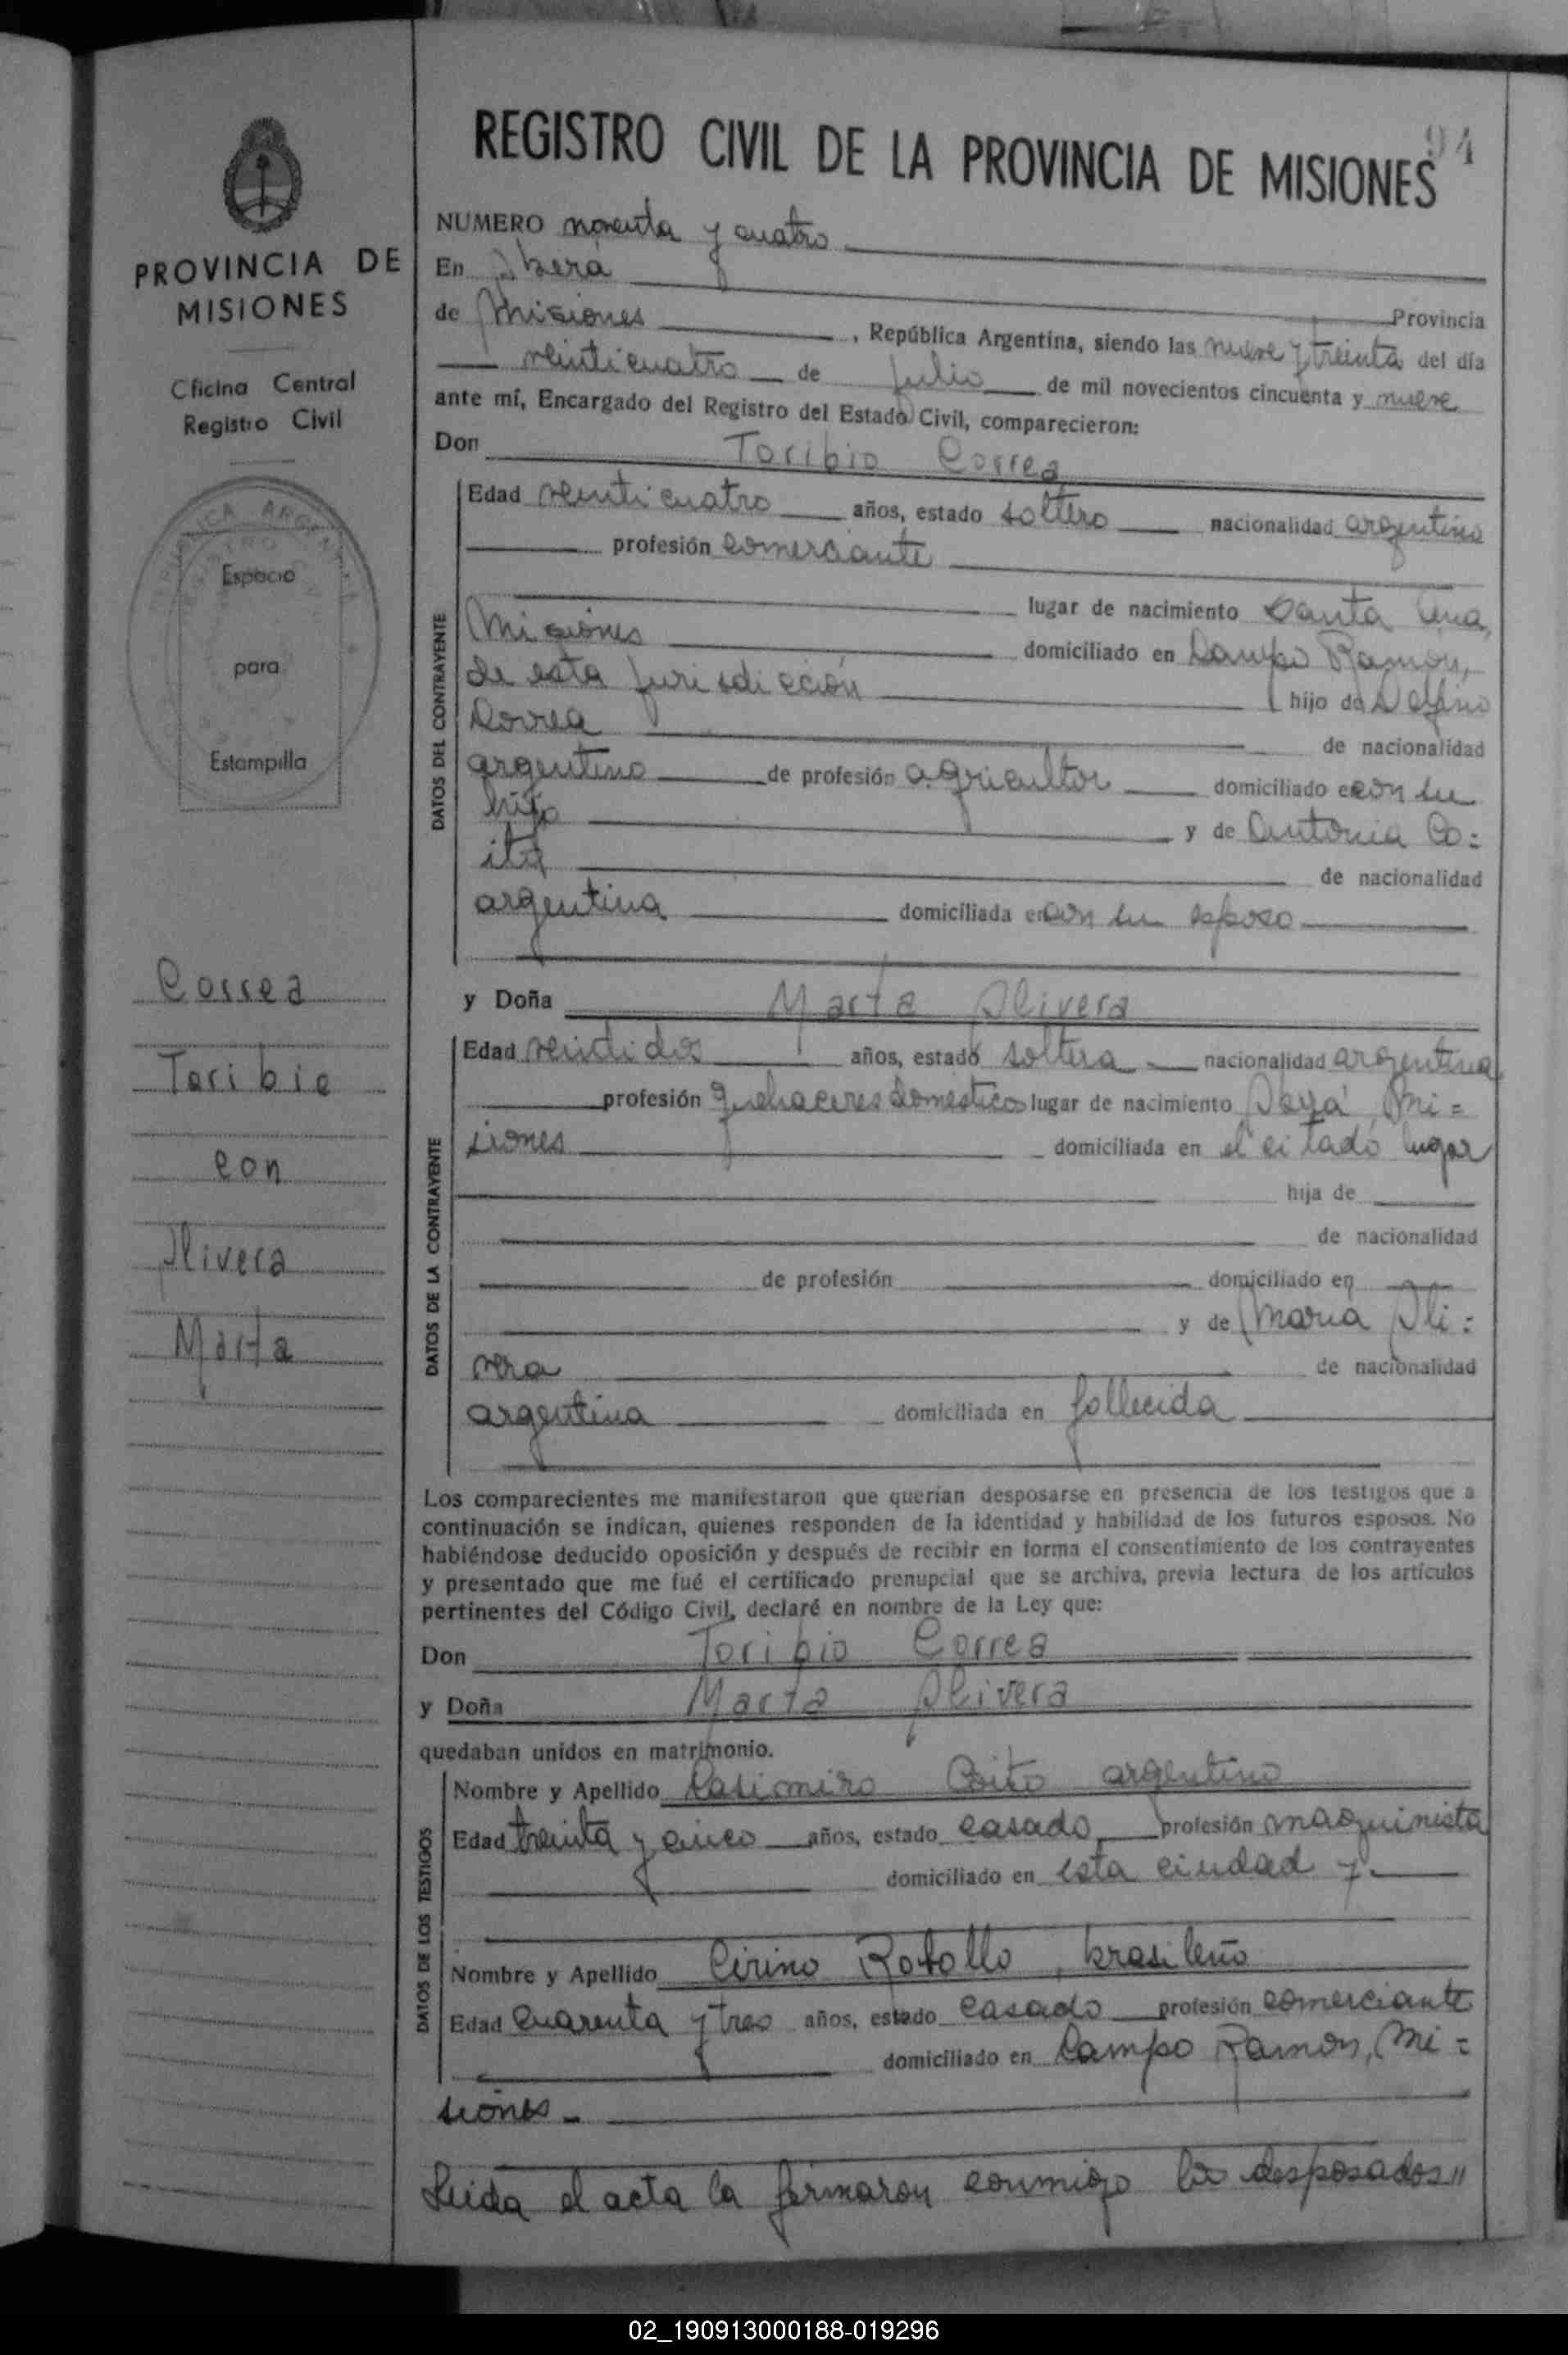 94
REGISTRO CIVIL DE LA PROVINCIA DE MISIONES
PROVINCIA DE
MISIONES
Oficina Central
Registro Civil
REPUBLICA ARGENTINA
Espacio
para
Estampilla
Correa
Toribio
con
Olivera
Marta
NUMERO noventa y cuatro
En Oberá
Provincia
de Misiones, República Argentina, siendo las nueve y treinta del día
veinticuatro de Julio de mil novecientos cincuenta y nueve
ante mí, Encargado del Registro del Estado Civil, comparecieron:
Don Toribio Correa
DATOS DEL CONTRAYENTE
Edad veinticuatro años, estado soltero nacionalidad argentino
profesión comerciante
lugar de nacimiento Santa Ana,
Misiones domiciliado en Campo Ramon,
de esta jurisdicción hijo de Delfino
Correa de nacionalidad
argentino de profesión agricultor domiciliado e con su
hijo y de Antonia Co=
ito de nacionalidad
argentina domiciliada en con su esposo
y Doña Marta Olivera
DATOS DE LA CONTRAYENTE
Edad veintidos años, estado soltera nacionalidad argentina
profesión quehaceres domésticos lugar de nacimiento Mi=
siones domiciliada en el citado lugar
hija de
de nacionalidad
de profesión domiciliado en
y de Maria Oli=
vera de nacionalidad
argentina domiciliada en fallecida
Los comparecientes me manifestaron que querían desposarse en presencia de los testigos que a
continuación se indican, quienes responden de la identidad y habilidad de los futuros esposos. No
habiéndose deducido oposición y después de recibir en forma el consentimiento de los contrayentes
y presentado que me fué el certificado prenupcial que se archiva, previa lectura de los artículos
pertinentes del Código Civil, declaré en nombre de la Ley que:
Don Toribio Correa
y Doña Marta Olivera
quedaban unidos en matrimonio.
DATOS DE LOS TESTIGOS
Nombre y Apellido Casimiro Coito argentino
Edad treinta y cinco años, estado casado profesión maquinista
domiciliado en esta ciudad y.
Nombre y Apellido Cirino Rotollo, brasileño
Edad cuarenta y tres años, estado casado profesión comerciante
domiciliado en Campo Ramon, Mi=
siones -
Leida el acta la firmaron conmigo los desposados"
02_190913000188-019296